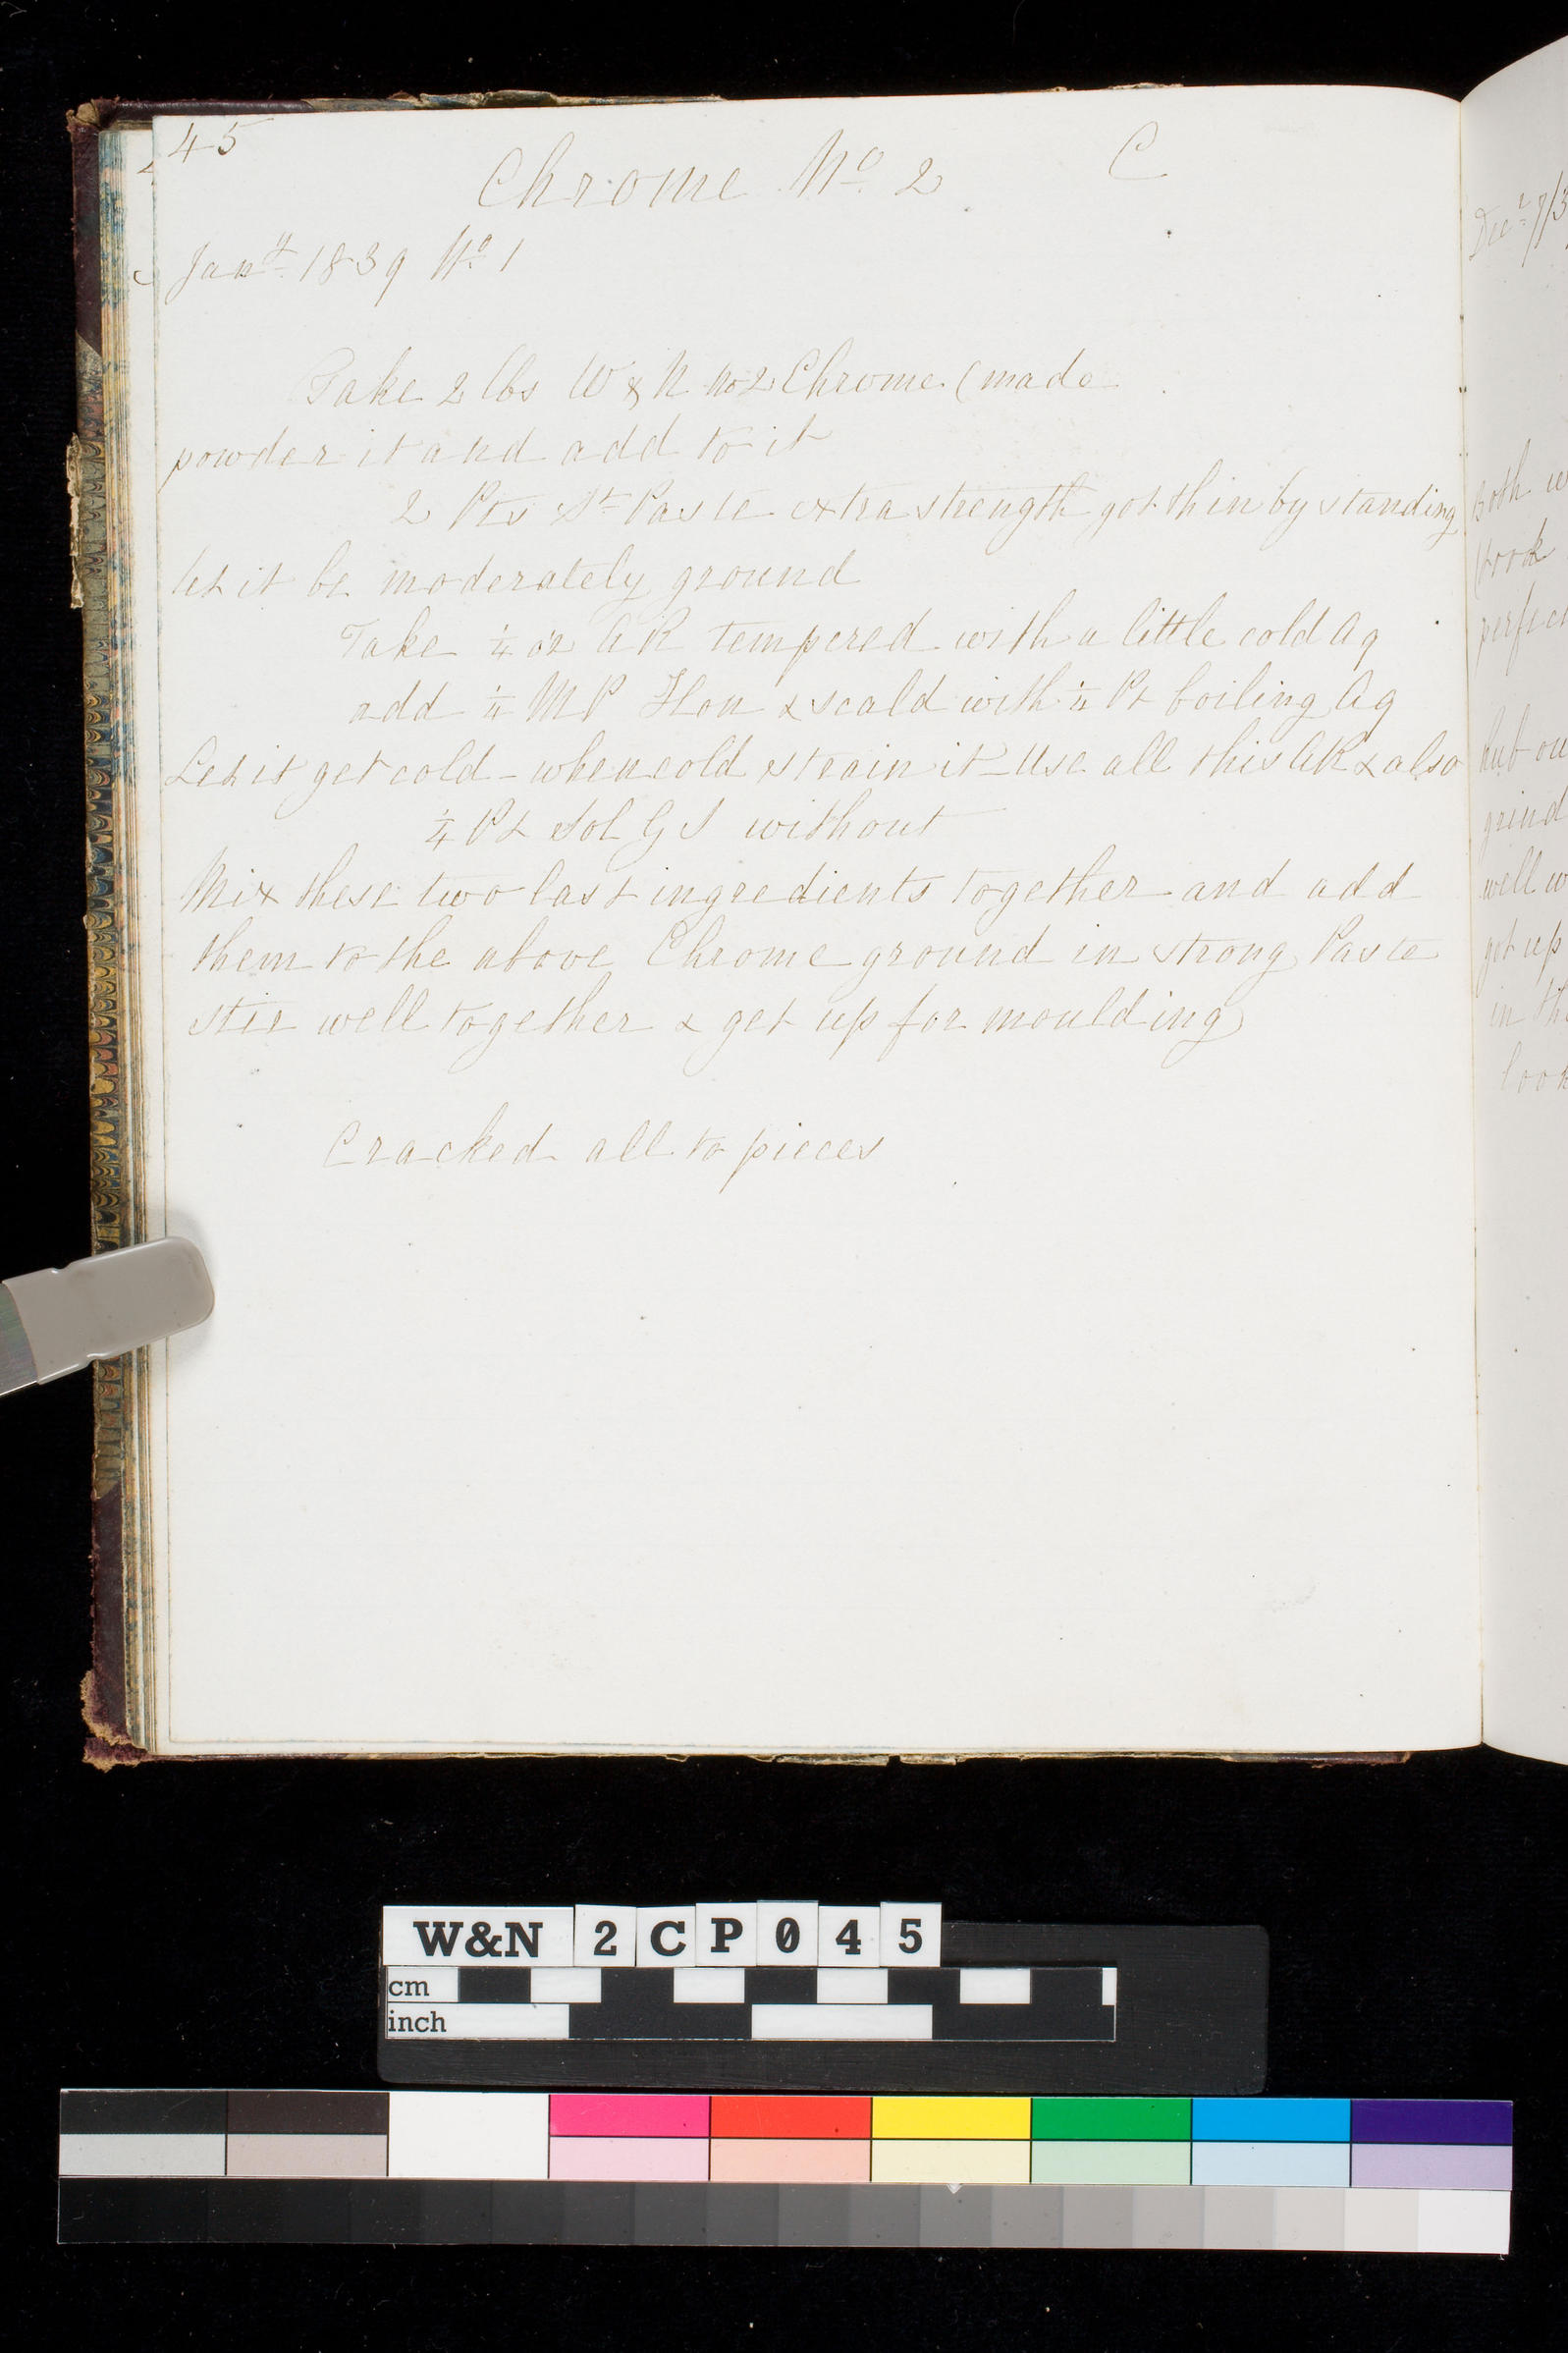 45
Chrome No. 2 C
Jany. 1839 No. 1
Take 2 lbs W & N No 2 Chrome (made
powder it and add to it
2 Pts St Paste extra strength got thin by standing
let it be moderately ground
Take ¼ oz AR tempered with a little cold Aq
add ¼ MP Hon & scald with ¼ Pt boiling Aq
Let it get cold - when cold strain it - Use all this AR & also
¼ Pt Sol G S without
Mix these two last ingredients together and add
them to the above Chrome ground in strong Paste
stir well together & get up for moulding
Cracked all to pieces
Both
perfec
grind
well w
got up
in th
look
W&N 2CP045
cm
inch